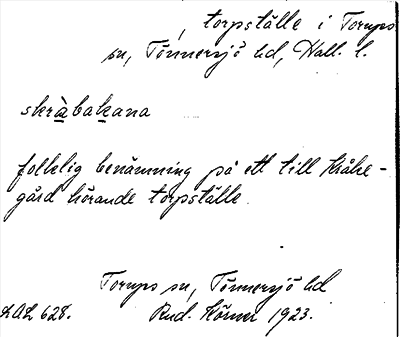 , torpställe i Torups
sn, Tönnersjö hd, Hall. l.
skràbakana
folklig benämning på ett till Kråke-
gård hörande torpställe.
Torups sn, Tönnersjö hd
LAL 628. Rud. Körner 1923.